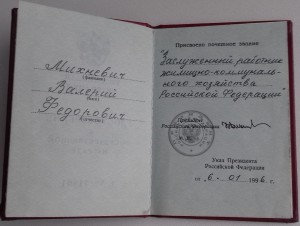 Михневич
(фамилия)
Валерий
(имя)
Федорович
(отчество)
Присвоено почетное звание
"Заслуженный работник
жилищно-коммуналь-
ного хозяйства
Российской Федерации"
Президент
Российской Федерации
Указ Президента
Российской Федерации
от 6 - 01 1996 г.